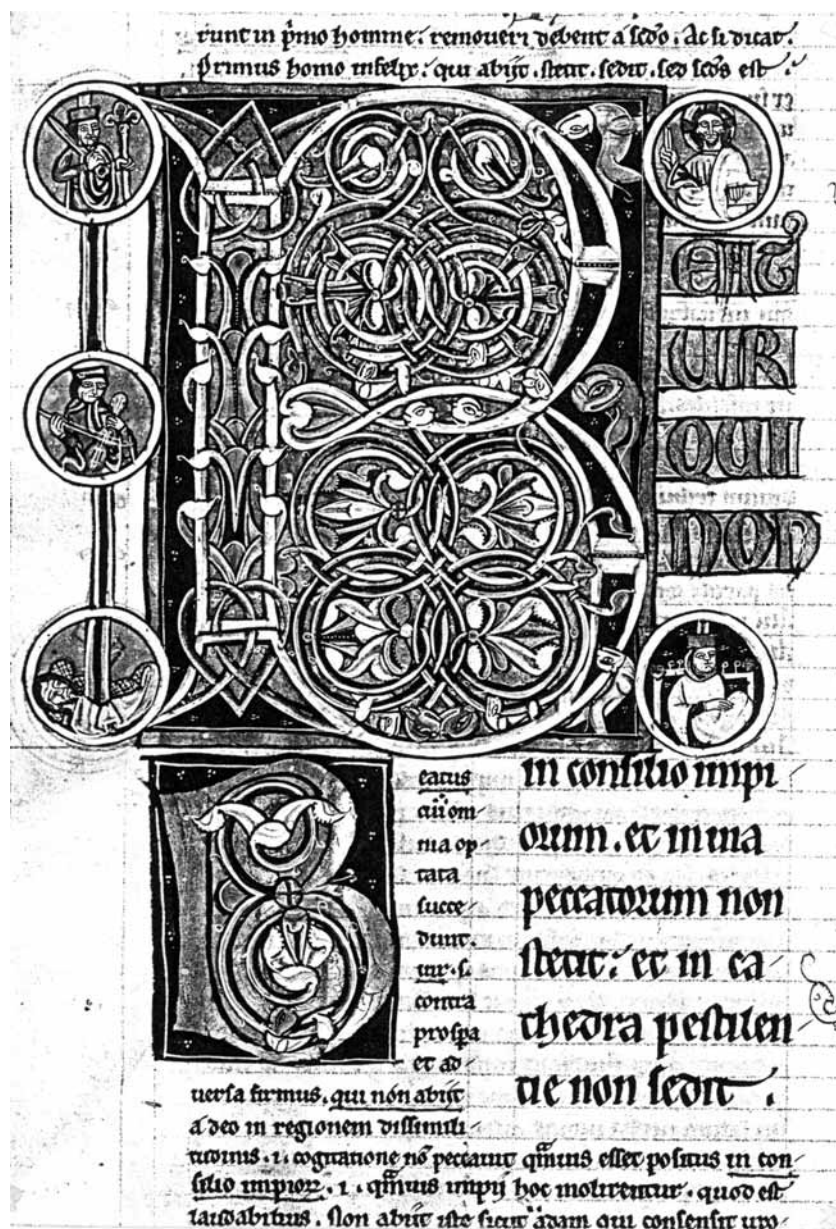 runt in p̄mo homine. removeri debent a scd̄o. Ac si dicat.
Primus homo infelix: qui abijt. stetit. sedit. sed scd̄s est
B
EAT
UIR
QUI
NON
in consilio impi
orum. et in uia
peccatorum non
stetit: et in ca
thedra pestilen
tie non sedit.
B
eatus
cui om
nia op
tata
succe
dunt.
uir. s.
contra
prospa
et ad
uersa firmus. qui non abijt
a deo in regionem dissimili
tudinis. i. cogitatione nō peccauit q̄muis esset positus in con
silio impioꝝ. i. q̄muis impij hoc molirentur. quod est
laudabilius. Non abijt iste sicut adam qui consensit uxo